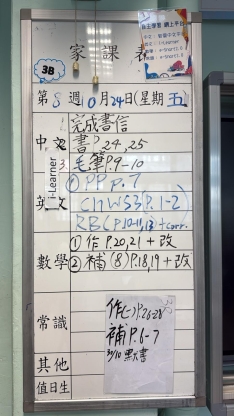 家課表
3B
第8週10月24日(星期五)
1完成書信
中文 2書P.24,25
3毛筆P.9-10
i-Learner
①PP P.7
英文 CH WS3(P.1-2)
RB(P.10-11,13)+corr.
①作P.20,21+改
數學 ②補(8)P.18,19+改
常識
作(二)P.26-28
補P.6-7
3/10
其他
值日生